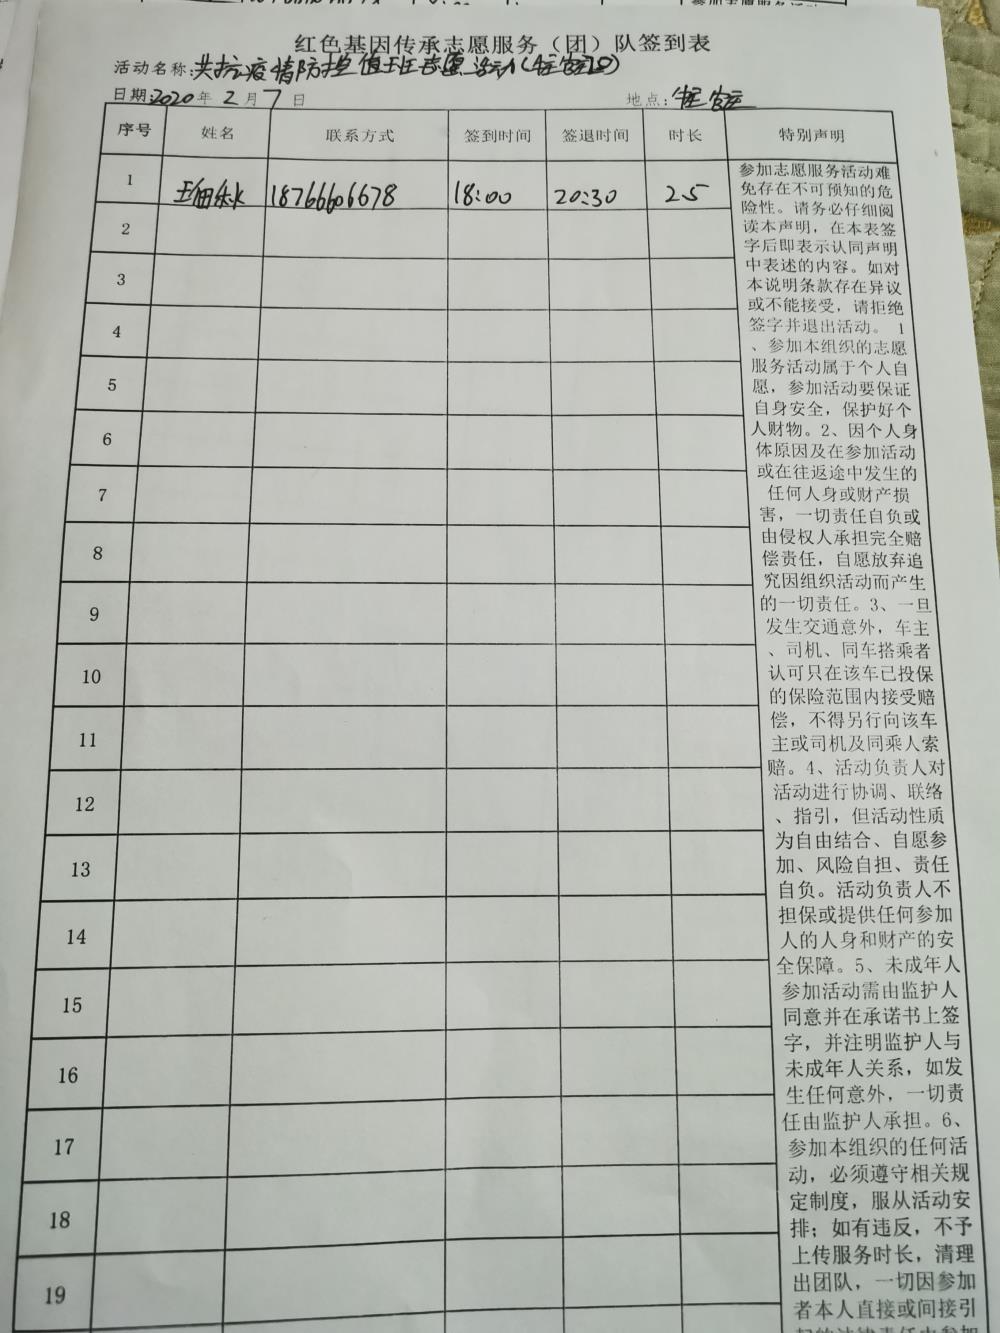 红色基因传承志愿服务（团）队签到表
活动名称：共抗疫情防控值班志愿活动
日期：2020年2月7日 地点：
序号 姓名 联系方式 签到时间 签退时间 时长 特别声明
1 18766606678 18:00 20:30 2.5
2
3
4
5
6
7
8
9
10
11
12
13
14
15
16
17
18
19
参加志愿服务活动难
免存在不可预知的危
险性。请务必仔细阅
读本声明，在本表签
字后即表示认同声明
中表述的内容。如对
本说明条款存在异议
或不能接受，请拒绝
签字并退出活动。 1
、参加本组织的志愿
服务活动属于个人自
愿，参加活动要保证
自身安全，保护好个
人财物。2、因个人身
体原因及在参加活动
或在往返途中发生的
任何人身或财产损
害，一切责任自负或
由侵权人承担完全赔
偿责任，自愿放弃追
究因组织活动而产生
的一切责任。3、一旦
发生交通意外，车主
、司机、同车搭乘者
认可只在该车已投保
的保险范围内接受赔
偿，不得另行向该车
主或司机及同乘人索
赔。4、活动负责人对
活动进行协调、联络
、指引，但活动性质
为自由结合、自愿参
加、风险自担、责任
自负。活动负责人不
担保或提供任何参加
人的人身和财产的安
全保障。5、未成年人
参加活动需由监护人
同意并在承诺书上签
字，并注明监护人与
未成年人关系，如发
生任何意外，一切责
任由监护人承担。6、
参加本组织的任何活
动，必须遵守相关规
定制度，服从活动安
排；如有违反，不予
上传服务时长，清理
出团队，一切因参加
者本人直接或间接引